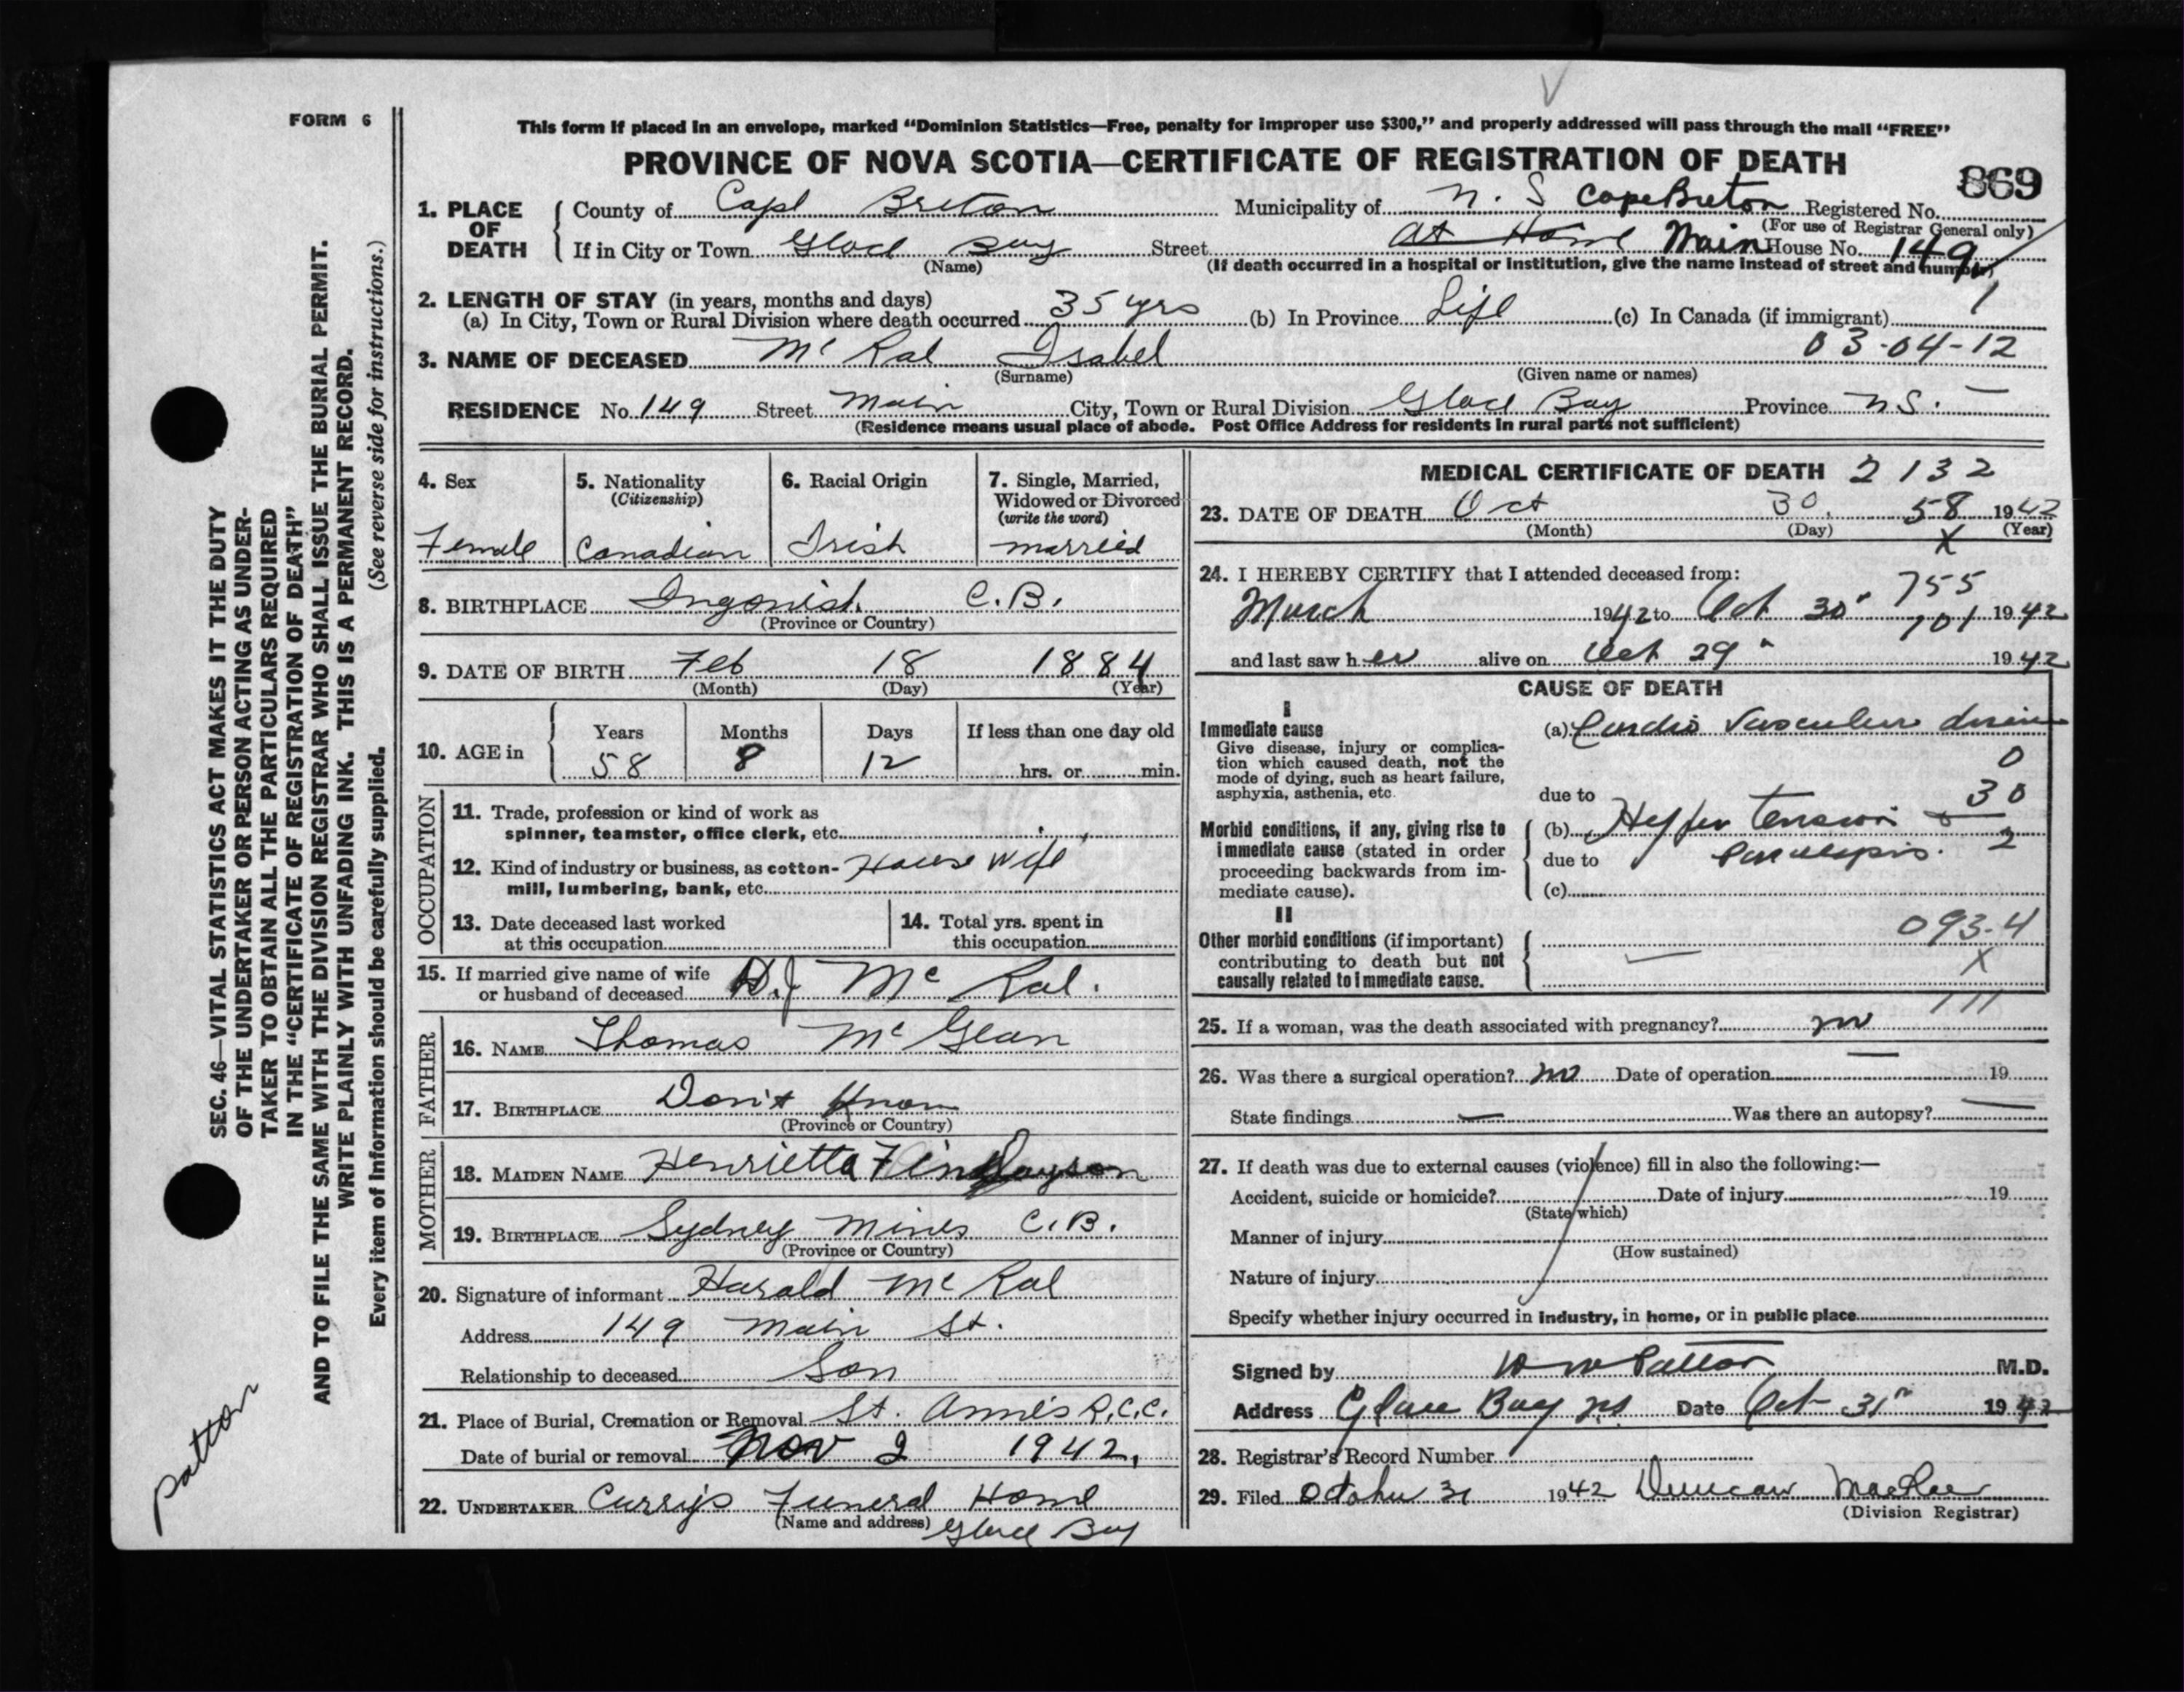 FORM 6
This form if placed in an envelope, marked “Dominion Statistics—Free, penalty for improper use $300,” and properly addressed will pass through the mail “FREE”
PROVINCE OF NOVA SCOTIA—CERTIFICATE OF REGISTRATION OF DEATH
869
1. PLACE OF DEATH
County of Cape Breton Municipality of N. S Cape Breton Registered No.
(For use of Registrar General only)
If in City or Town Glace Bay Street At Home Main House No. 149
(Name) (If death occurred in a hospital or institution, give the name instead of street and number)
2. LENGTH OF STAY (in years, months and days)
(a) In City, Town or Rural Division where death occurred 35 yrs (b) In Province Life (c) In Canada (if immigrant) 1
3. NAME OF DECEASED Mc Rae Isabel 03-04-12
(Surname) (Given name or names)
RESIDENCE No. 149 Street Main City, Town or Rural Division Glace Bay Province N S.
(Residence means usual place of abode. Post Office Address for residents in rural parts not sufficient)
4. Sex
Female
5. Nationality
(Citizenship)
Canadian
6. Racial Origin
Irish
7. Single, Married,
Widowed or Divorced
(write the word)
married
8. BIRTHPLACE Ingonish C.B.
(Province or Country)
9. DATE OF BIRTH Feb 18 1884
(Month) (Day) (Year)
10. AGE in
Years Months Days If less than one day old
58 8 12 hrs. or min.
OCCUPATION
11. Trade, profession or kind of work as
spinner, teamster, office clerk, etc.
12. Kind of industry or business, as cotton-
mill, lumbering, bank, etc. House Wife
13. Date deceased last worked
at this occupation
14. Total yrs. spent in
this occupation
15. If married give name of wife
or husband of deceased D.J Mc Rae.
FATHER
16. NAME Thomas Mc Gean
17. BIRTHPLACE Don't Know
(Province or Country)
MOTHER
18. MAIDEN NAME Henrietta Finlayson
19. BIRTHPLACE Sydney Mines C.B.
(Province or Country)
20. Signature of informant Harald Mc Rae
Address 149 Main St.
Relationship to deceased Son
21. Place of Burial, Cremation or Removal St. Anne's R.C.C.
Date of burial or removal Nov 2 1942.
22. UNDERTAKER Curry's Funeral Home
(Name and address) Glace Bay
MEDICAL CERTIFICATE OF DEATH 2132
23. DATE OF DEATH Oct 30. 58 1942
(Month) (Day) X (Year)
24. I HEREBY CERTIFY that I attended deceased from:
755
March 1942 to Oct 30" 101 1942
and last saw her alive on Oct 29" 1942
CAUSE OF DEATH
I
Immediate cause
Give disease, injury or complica-
tion which caused death, not the
mode of dying, such as heart failure,
asphyxia, asthenia, etc.
(a) Cardio Vascular disease
0
due to
30
Morbid conditions, if any, giving rise to
immediate cause (stated in order
proceeding backwards from im-
mediate cause).
(b) Hyper tension
2
due to paralysis.
(c)
II
Other morbid conditions (if important)
contributing to death but not
causally related to immediate cause.
093-4
X
111
25. If a woman, was the death associated with pregnancy? no
26. Was there a surgical operation? no Date of operation 19
State findings — Was there an autopsy? —
27. If death was due to external causes (violence) fill in also the following:—
Accident, suicide or homicide? Date of injury 19
(State which)
Manner of injury
(How sustained)
Nature of injury
Specify whether injury occurred in industry, in home, or in public place
Signed by Patton M.D.
Address Glace Bay NS Date Oct 31" 1942
28. Registrar's Record Number
29. Filed October 31 1942 Duncan MacRae
(Division Registrar)
SEC. 46—VITAL STATISTICS ACT MAKES IT THE DUTY
OF THE UNDERTAKER OR PERSON ACTING AS UNDER-
TAKER TO OBTAIN ALL THE PARTICULARS REQUIRED
IN THE “CERTIFICATE OF REGISTRATION OF DEATH”
AND TO FILE THE SAME WITH THE DIVISION REGISTRAR WHO SHALL ISSUE THE BURIAL PERMIT.
WRITE PLAINLY WITH UNFADING INK. THIS IS A PERMANENT RECORD.
Every item of information should be carefully supplied. (See reverse side for instructions.)
Patton